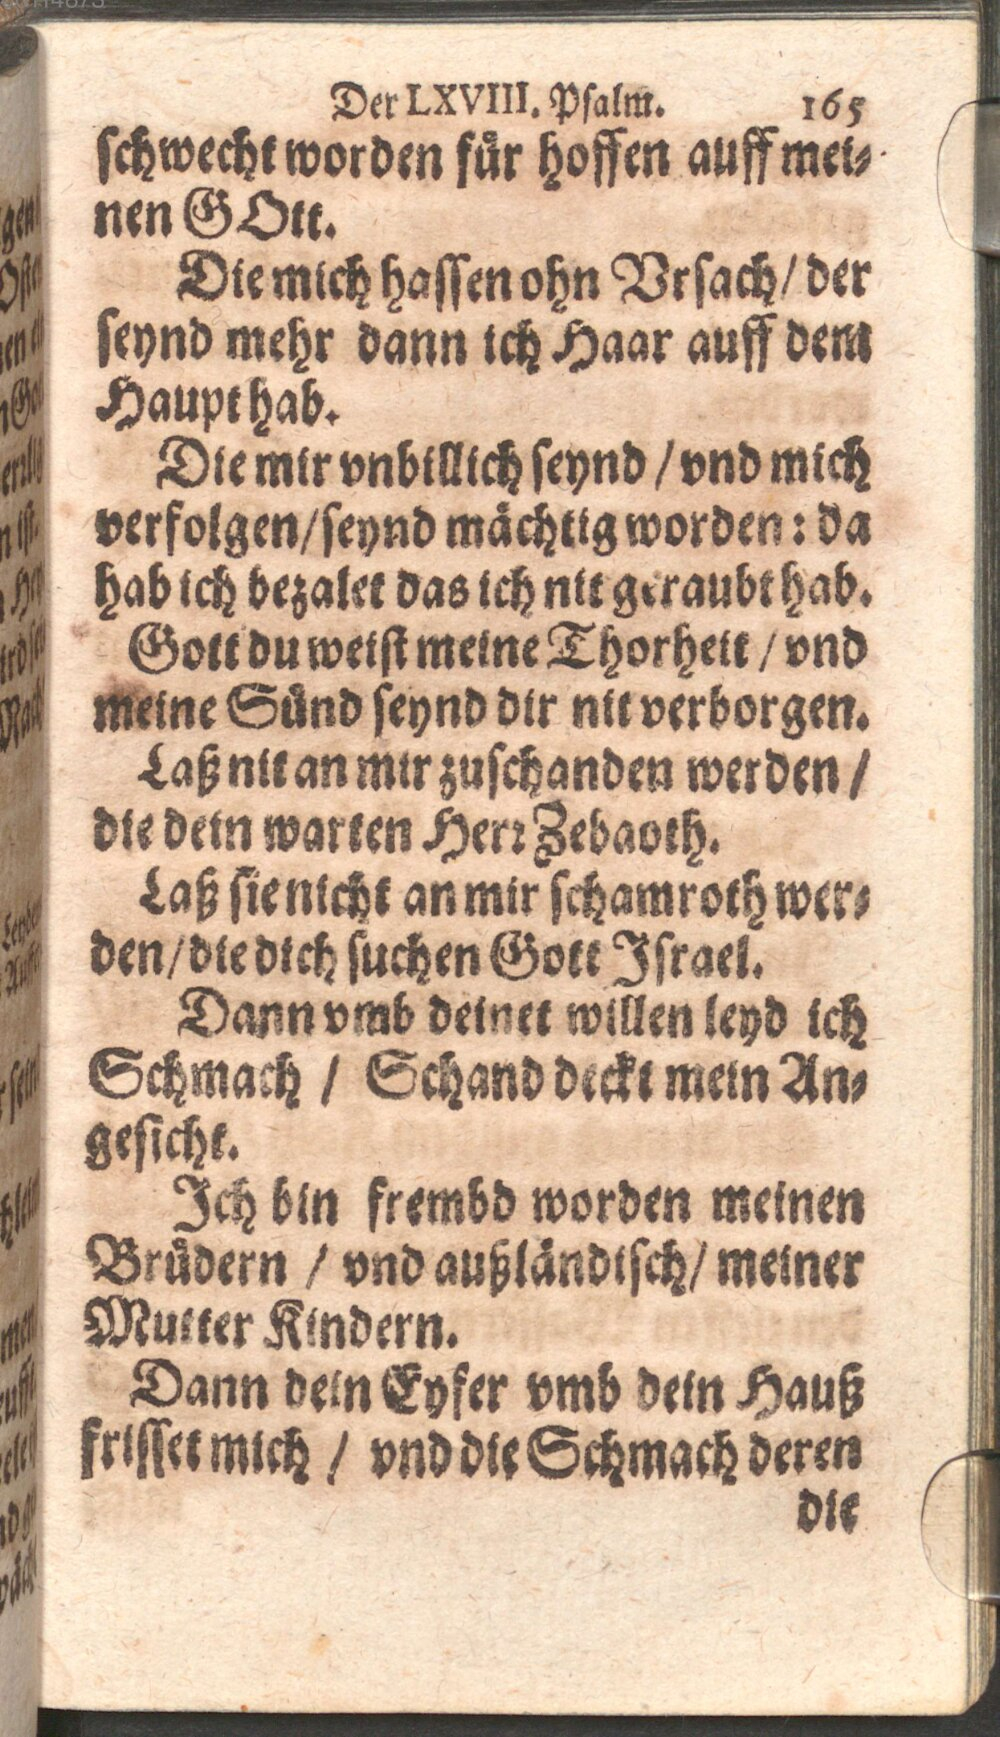 Der LXVIII. Psalm. 165
schwecht worden fůr hoffen auff mei-
nen GOtt.
Die mich hassen ohn Vrsach/ der
seynd mehr dann ich Haar auff dem
Haupt hab.
Die mir vnbillich seynd / vnd mich
verfolgen/seynd mächtig worden: da
hab ich bezalet das ich nit geraubt hab.
Gott du weist meine Thorheit / vnd
meine Sůnd seynd dir nit verborgen.
Laß nit an mir zuschanden werden /
die dein warten Herr Zebaoth.
Laß sie nicht an mir schamroth wer-
den/die dich suchen Gott Israel.
Dann vmb deinet willen leyd ich
Schmach / Schand deckt mein An-
gesicht.
Ich bin frembd worden meinen
Brůdern / vnd außländisch/ meiner
Mutter Kindern.
Dann dein Eyfer vmb dein Hauß
frisset mich / vnd die Schmach deren
die